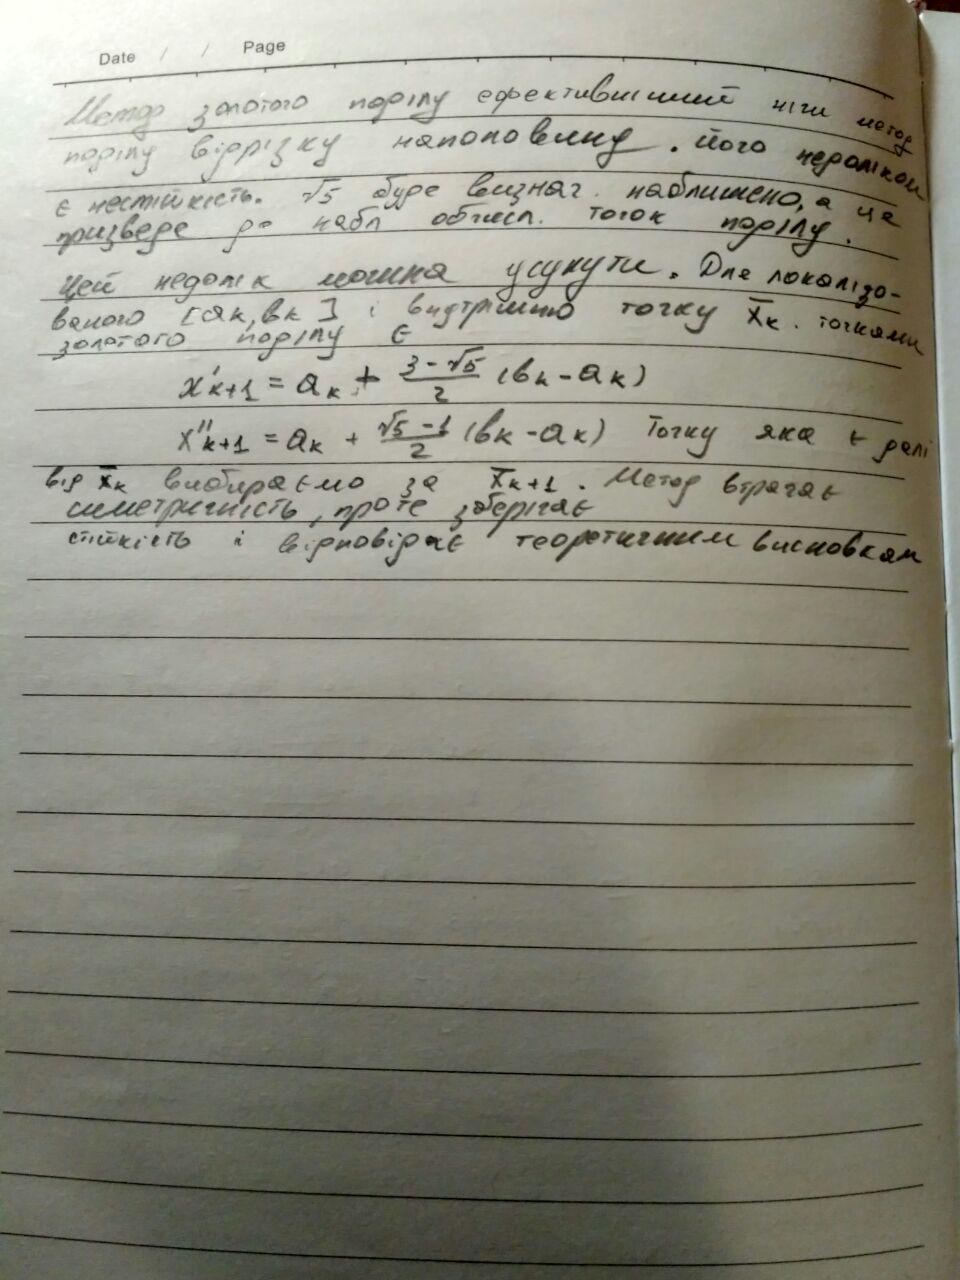 Date / / Page
Метод золотого поділу ефективніший ніж метод
поділу відрізку наполовину. його недоліком
є нестійкість. √5 буде визнач. наближено, а це
призведе до набл обчисл. точок поділу.
Цей недолік можна усунути. Для локалізо-
ваного [aк, вк] і внутрішню точку x̄к. точками
золотого поділу є
x'к+1 = aк + (3-√5)/2 (вк - aк)
x''к+1 = aк + (√5-1)/2 (вк - aк) точку яка є далі
від x̄к вибираємо за x̄к+1. Метод втрачає
симетричність, проте зберігає
стійкість і відповідає теоретичним висновкам